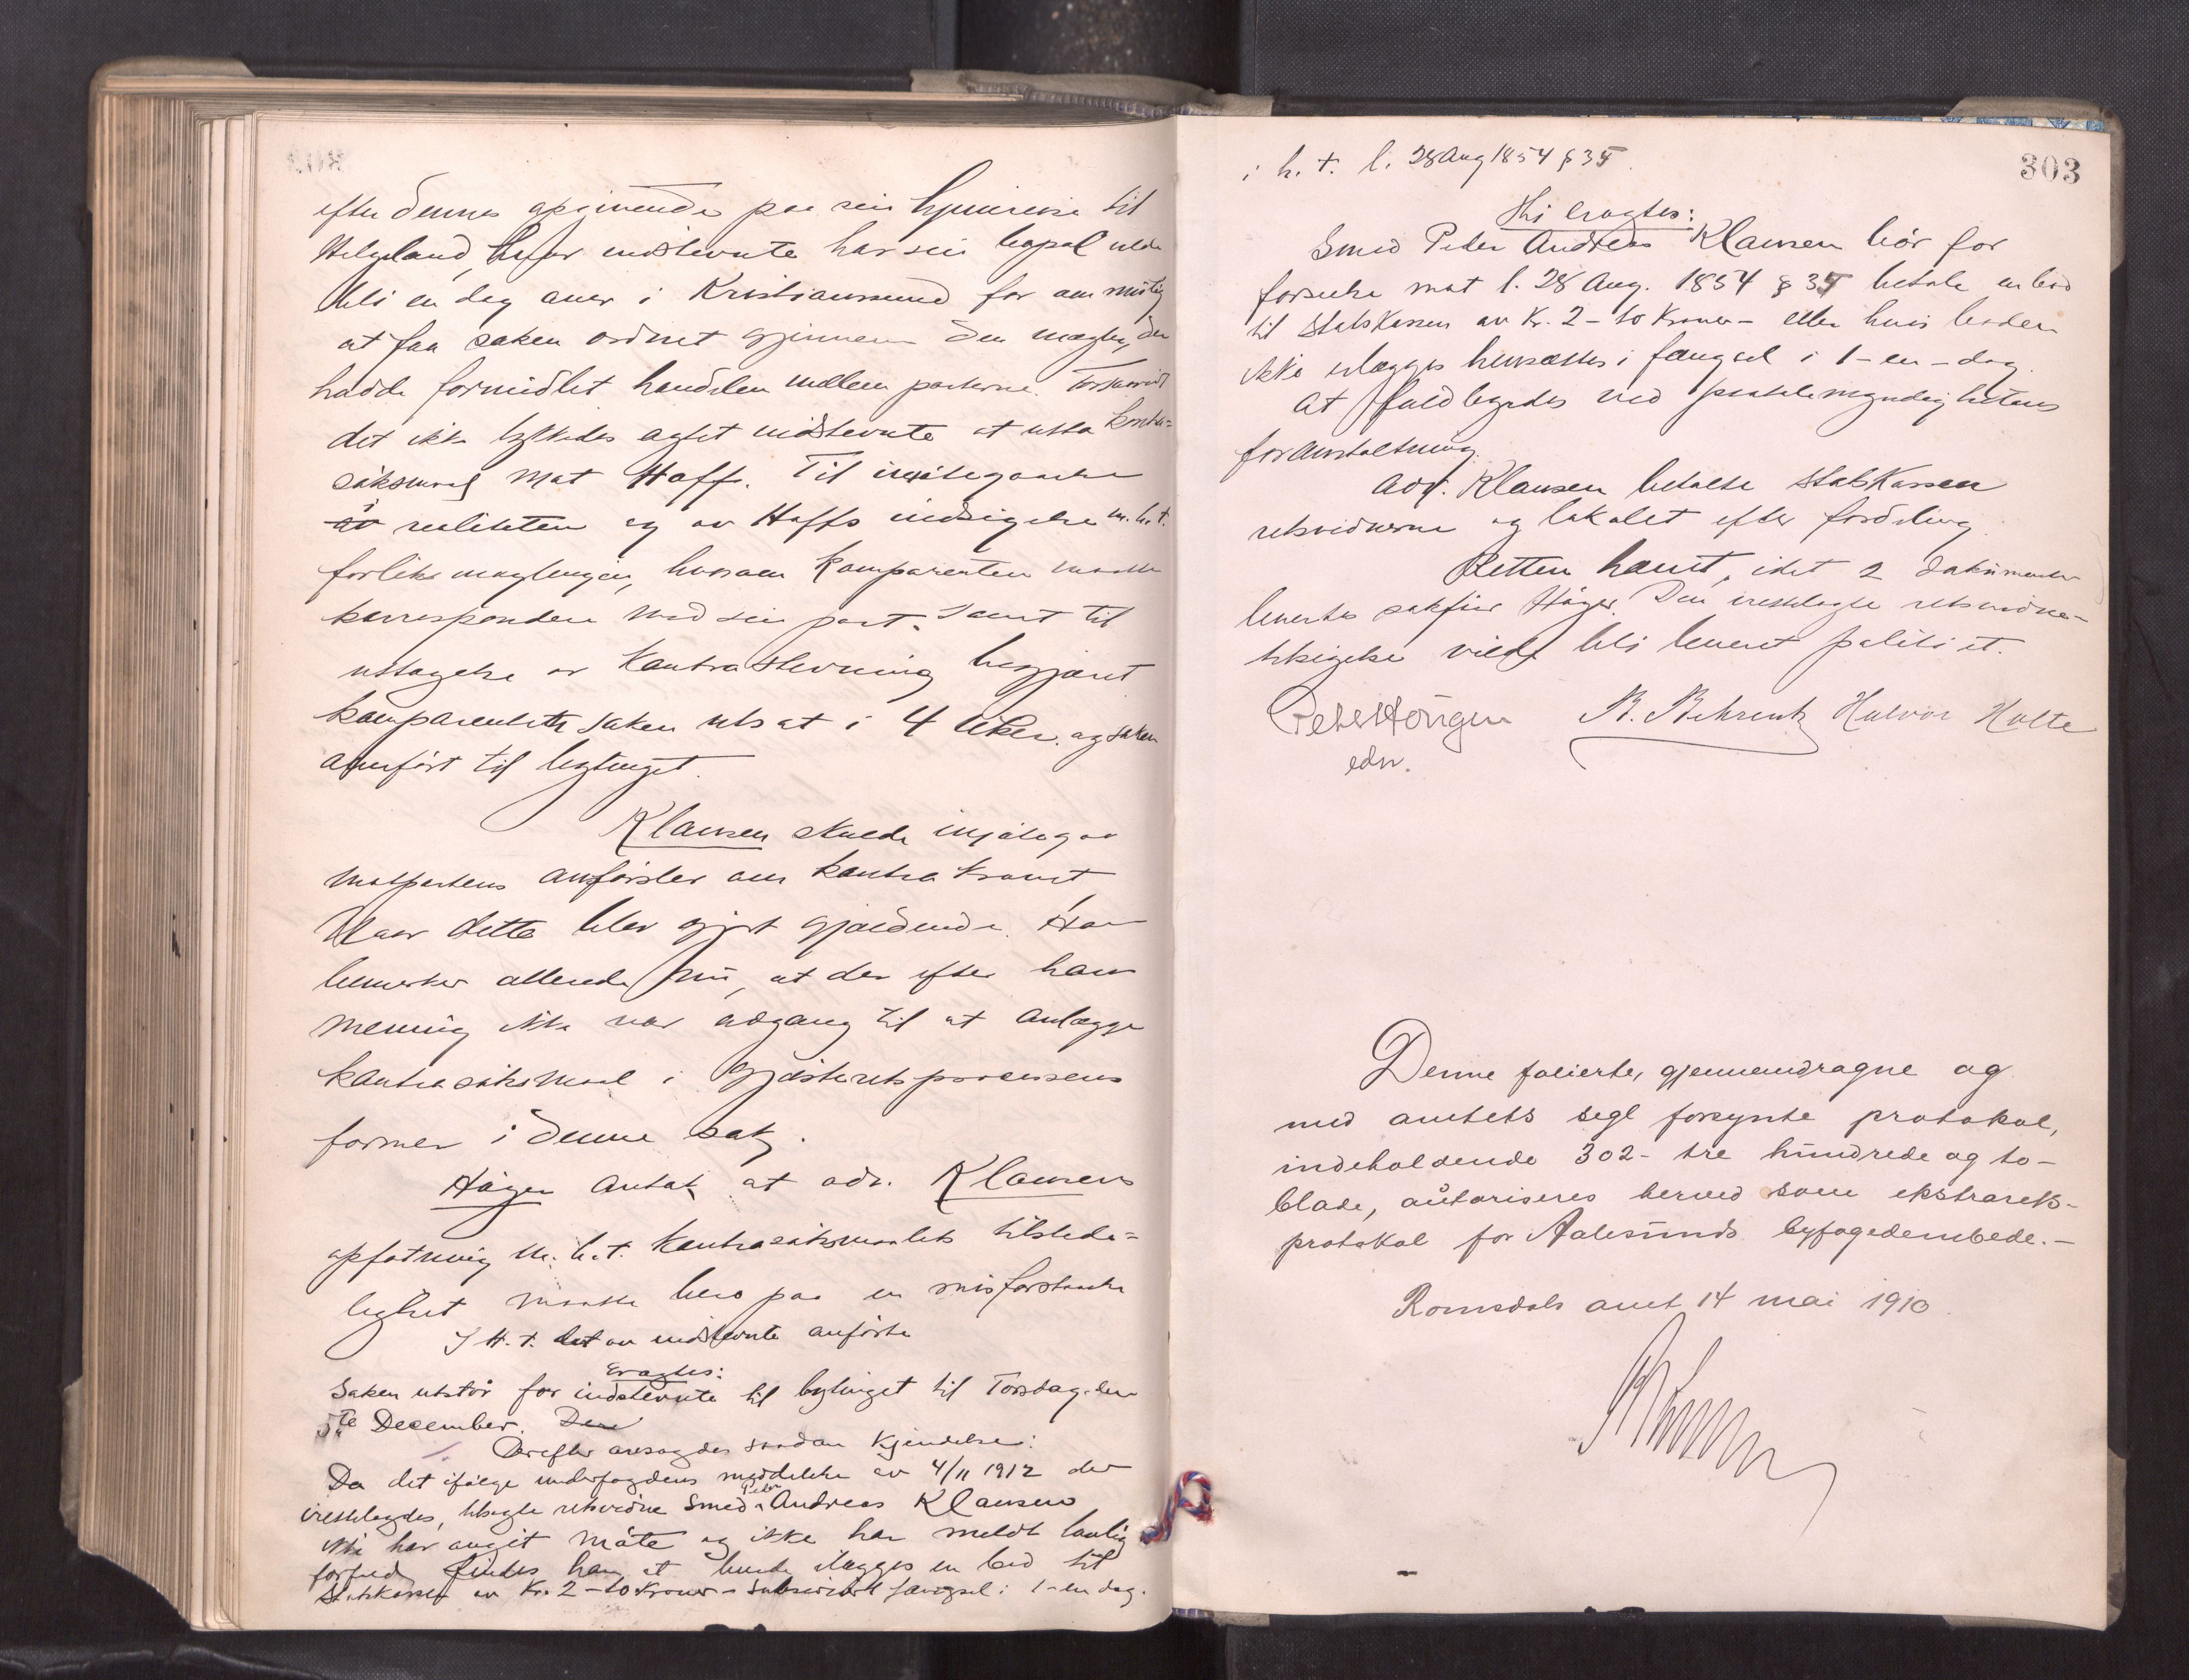 efter dennes opgivende paa sin hjemreise til
Helgeland, hvor indstevnte har sin bopæl vilde
bli en dag over i Kristiansund for om mulig
at faa saken ordnet gjennem den mægler, der
hadde formidlet handelen mellem parterne. Forsaavidt
det ikke lykkedes agtet indstevnte at utta kontra-
søksmaal mot Hoff. Til imøtegaaelse
av realiteten og av Hoffs indsigelse m. h. t.
forliksmæglingen, hvorom komparenten maatte
korrespondere med sin part, samt til
uttagelse av kontrastevning begjært
komparenten saken utsat i 4 uker og saken
overført til bytinget.
Klausen skulde imøtegaa
motpartens anførsler om kontrakravet
naar dette blev gjort gjældende. Han
bemerker allerede nu, at der efter hans
mening ikke var adgang til at anlægge
kontrasøksmaal i gjesteretsprocessens
former i denne sak.
Høgen antok at adv. Klausens
opfatning m. h. t. kontrasøksmaalets tilstede-
lighet maatte bero paa en misforstaaelse
I H. t. det av indstevnte anførte
Eragtes:
Saken utstår for indstevnte til bytinget til Torsdag den
5te December. Den
Derefter avsagdes saadan Kjendelse:
Da det ifølge underfogdens meddelelse av 4/11 1912 der
irettelagdes, tilsagte retsvidne Smed Peter Andreas Klausen
ikke har angit møte og ikke har meldt lovlig
forfald findes han at burde ilægges en bod til
Statskassen av Kr. 2 - to Kroner - subsidiært fængsel i 1 - en dag.
303
i h. t. l. 28 Aug 1854 § 35.
Thi eragtes:
Smed Peter Andreas Klausen bør for
forseelse mot l. 28 Aug. 1854 § 35 betale en bod
til Statskassen av Kr. 2 - to Kroner - eller hvis boden
ikke erlægges hensættes i fængsel i 1 - en - dag.
At fuldbyrdes ved paatalemyndighetens
foranstaltning.
Adv. Klausen betalte Statskassen
retsvidnerne og lokalet efter fordeling
Retten hævet, idet 2 dokumenter
levertes sakfører Høgen. Den irettelagte retsvidne-
tilsigelse vilde bli leveret politiet.
Peter Höngen B. Behrentz Halvor Holte
edv.
Denne folierte, gjennemdragne og
med amtets segl forsynte protokol,
indeholdende 302 - tre hundrede og to -
blade, autoriseres herved som ekstrarets-
protokol for Aalesunds byfogedembede. -
Romsdals amt 14 mai 1910.